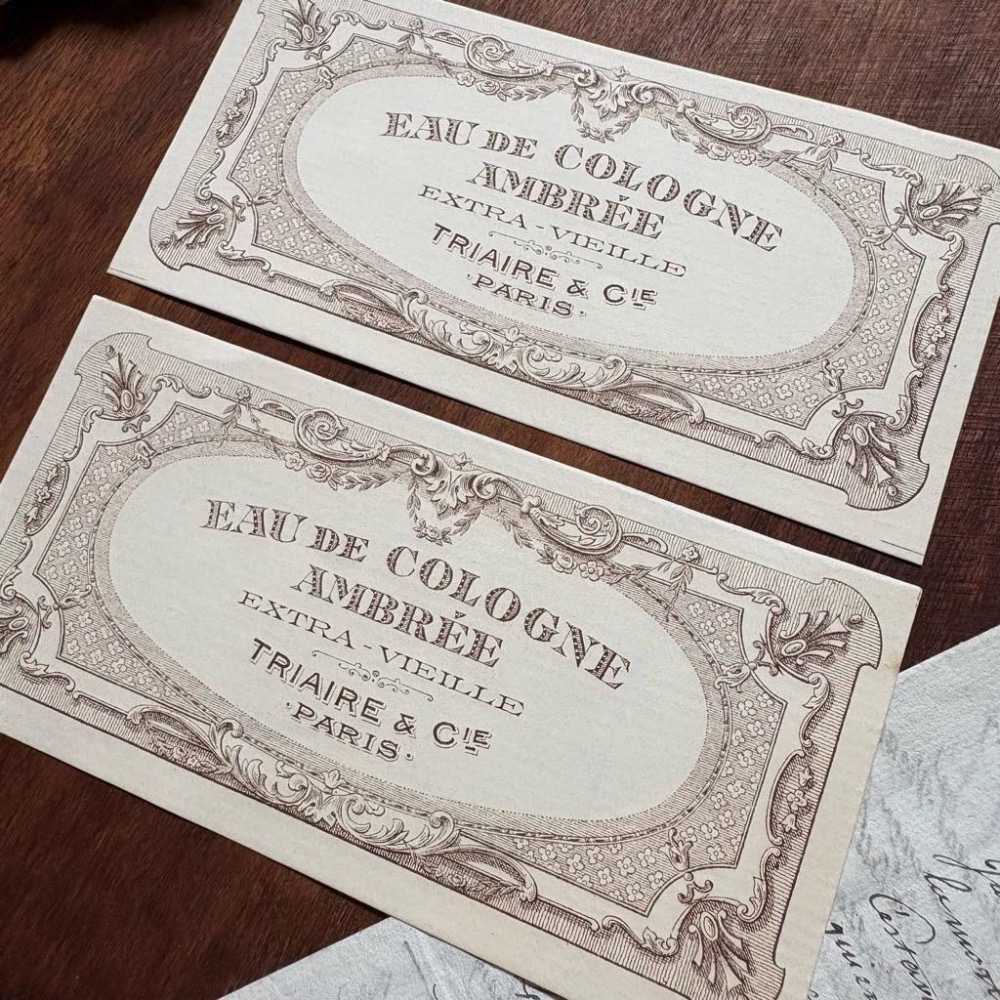 EAU DE COLOGNE
AMBRÉE
EXTRA-VIEILLE
TRIAIRE & CIE
·PARIS·
EAU DE COLOGNE
AMBRÉE
EXTRA-VIEILLE
TRIAIRE & CIE
·PARIS·